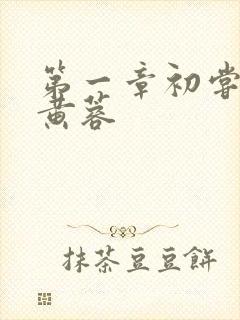 第一章初嘗
黄蓉
抹茶豆豆餅